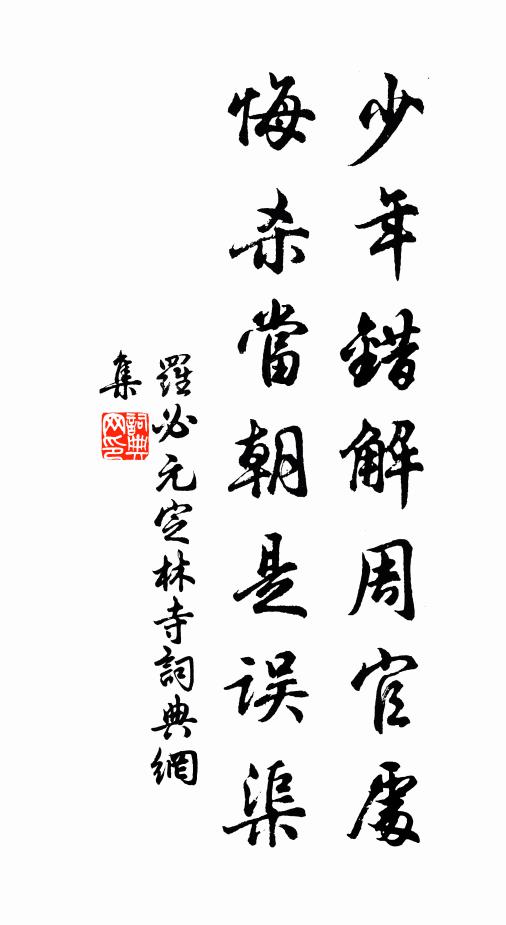 少年錯解周官處
悔杀當朝是误渠
羅必元定林寺詞典網
集
詞典网印